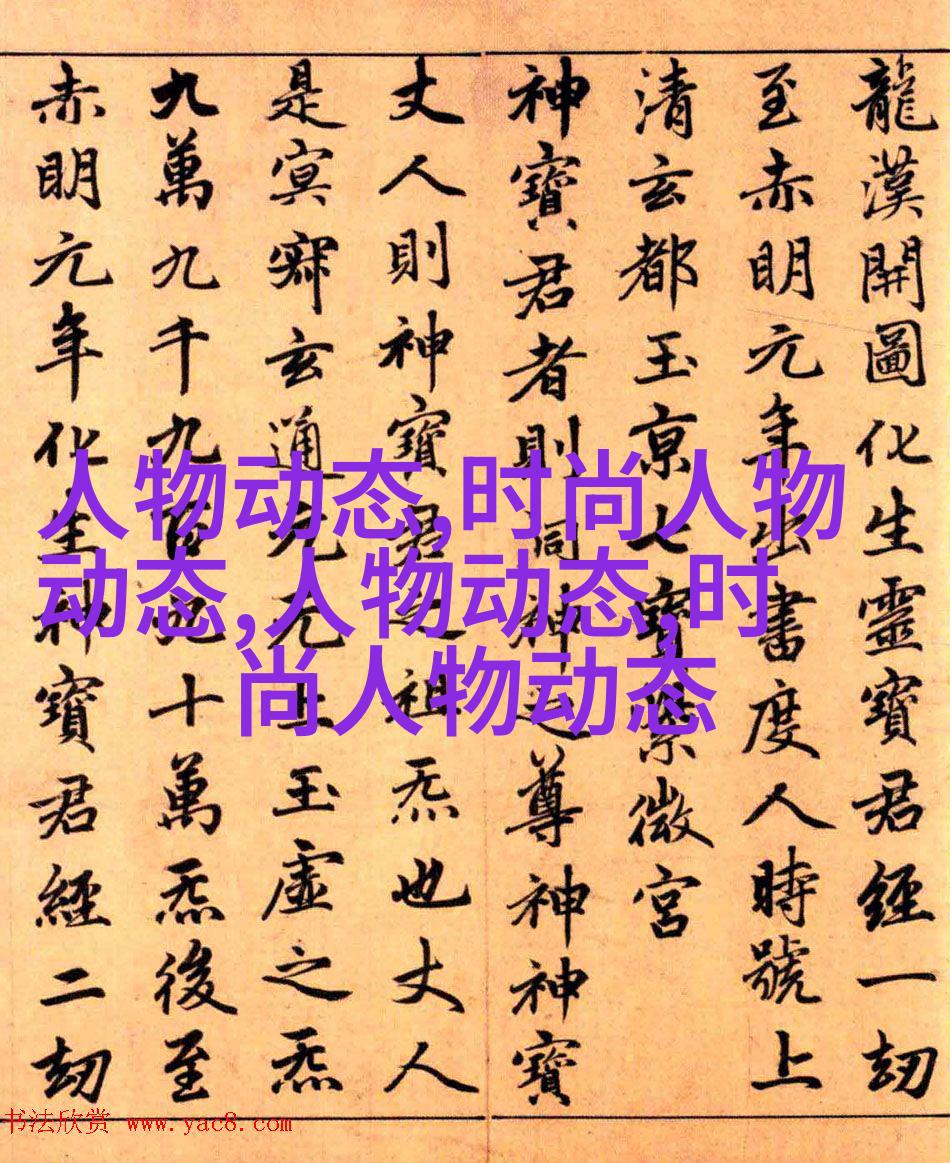 龍漢開圖化生靈寶君經一劫
至赤明元年出書度人時號上
清玄都玉京七寶紫微宮
神寶君者則洞神之尊神神寶
丈人則神寶君之祖炁也丈人
是冥寂玄通元无上玉虛之炁
九萬九千九百九十萬炁後至
赤明元年化生神寶君經二劫
人物动态,时尚人物
动态,人物动态,时
尚人物动态
书法欣赏 www.yac8.com